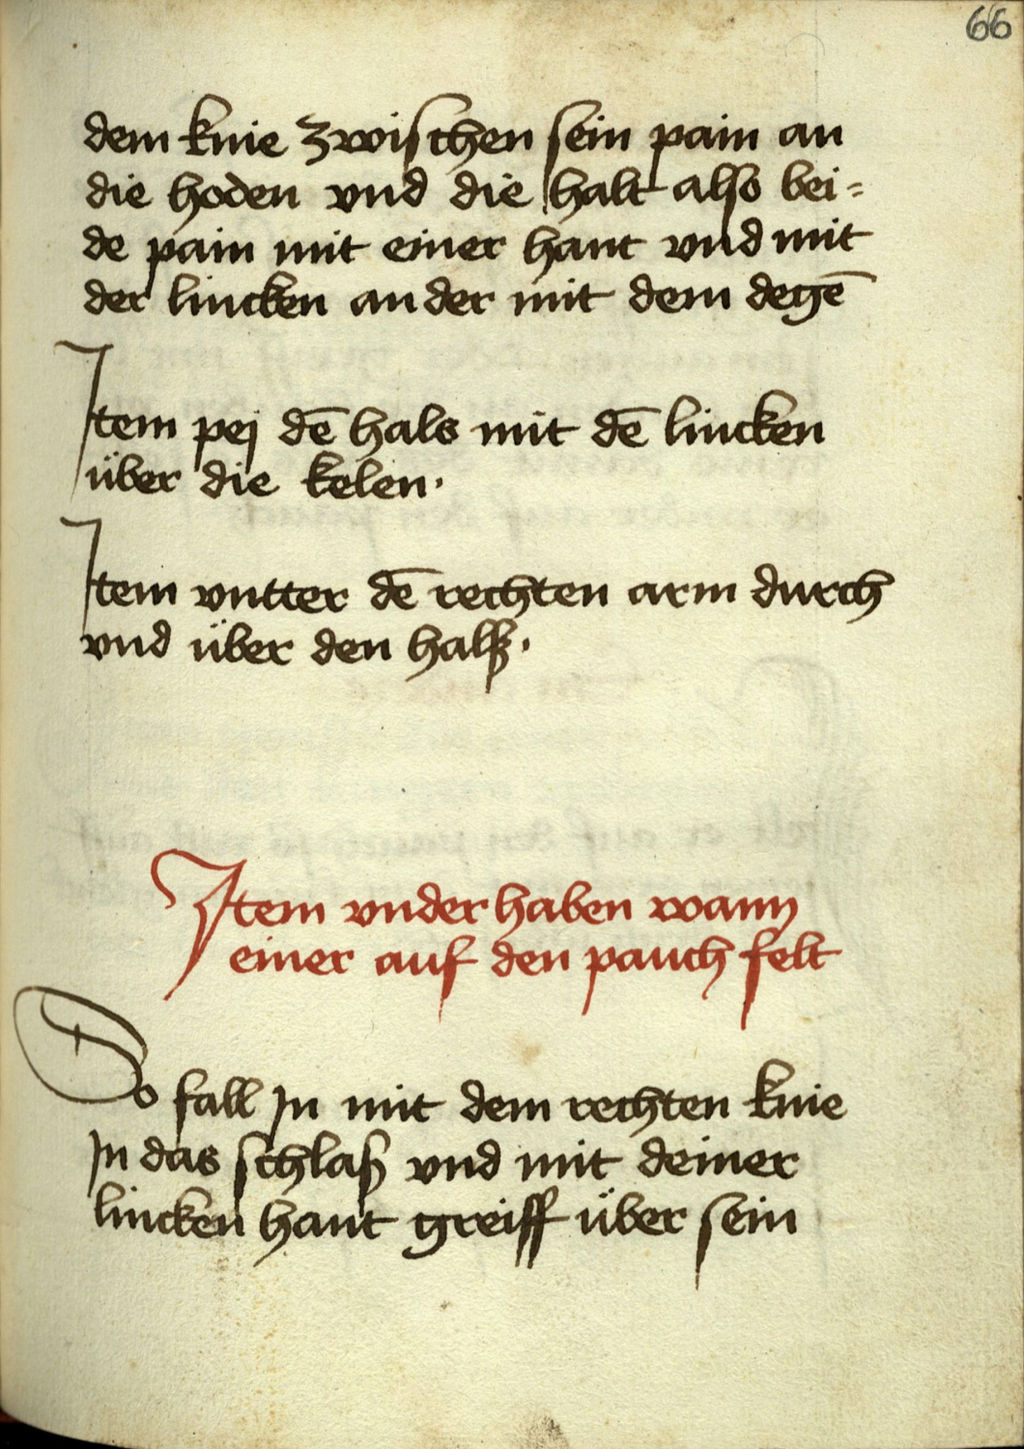 66
dem knie zwischen sein pain an
die hoden vnd die halt also bei=
de pain mit einer hant vnd mit
der lincken ander mit dem degē
Item pej dē hals mit dē lincken
über die kelen.
Item vntter dē rechten arm durch
vnd über den halß.
Item vnder haben wann
einer auf den pauch felt
So fall In mit dem rechten knie
In das schlaß vnd mit deiner
lincken hant greiff über sein